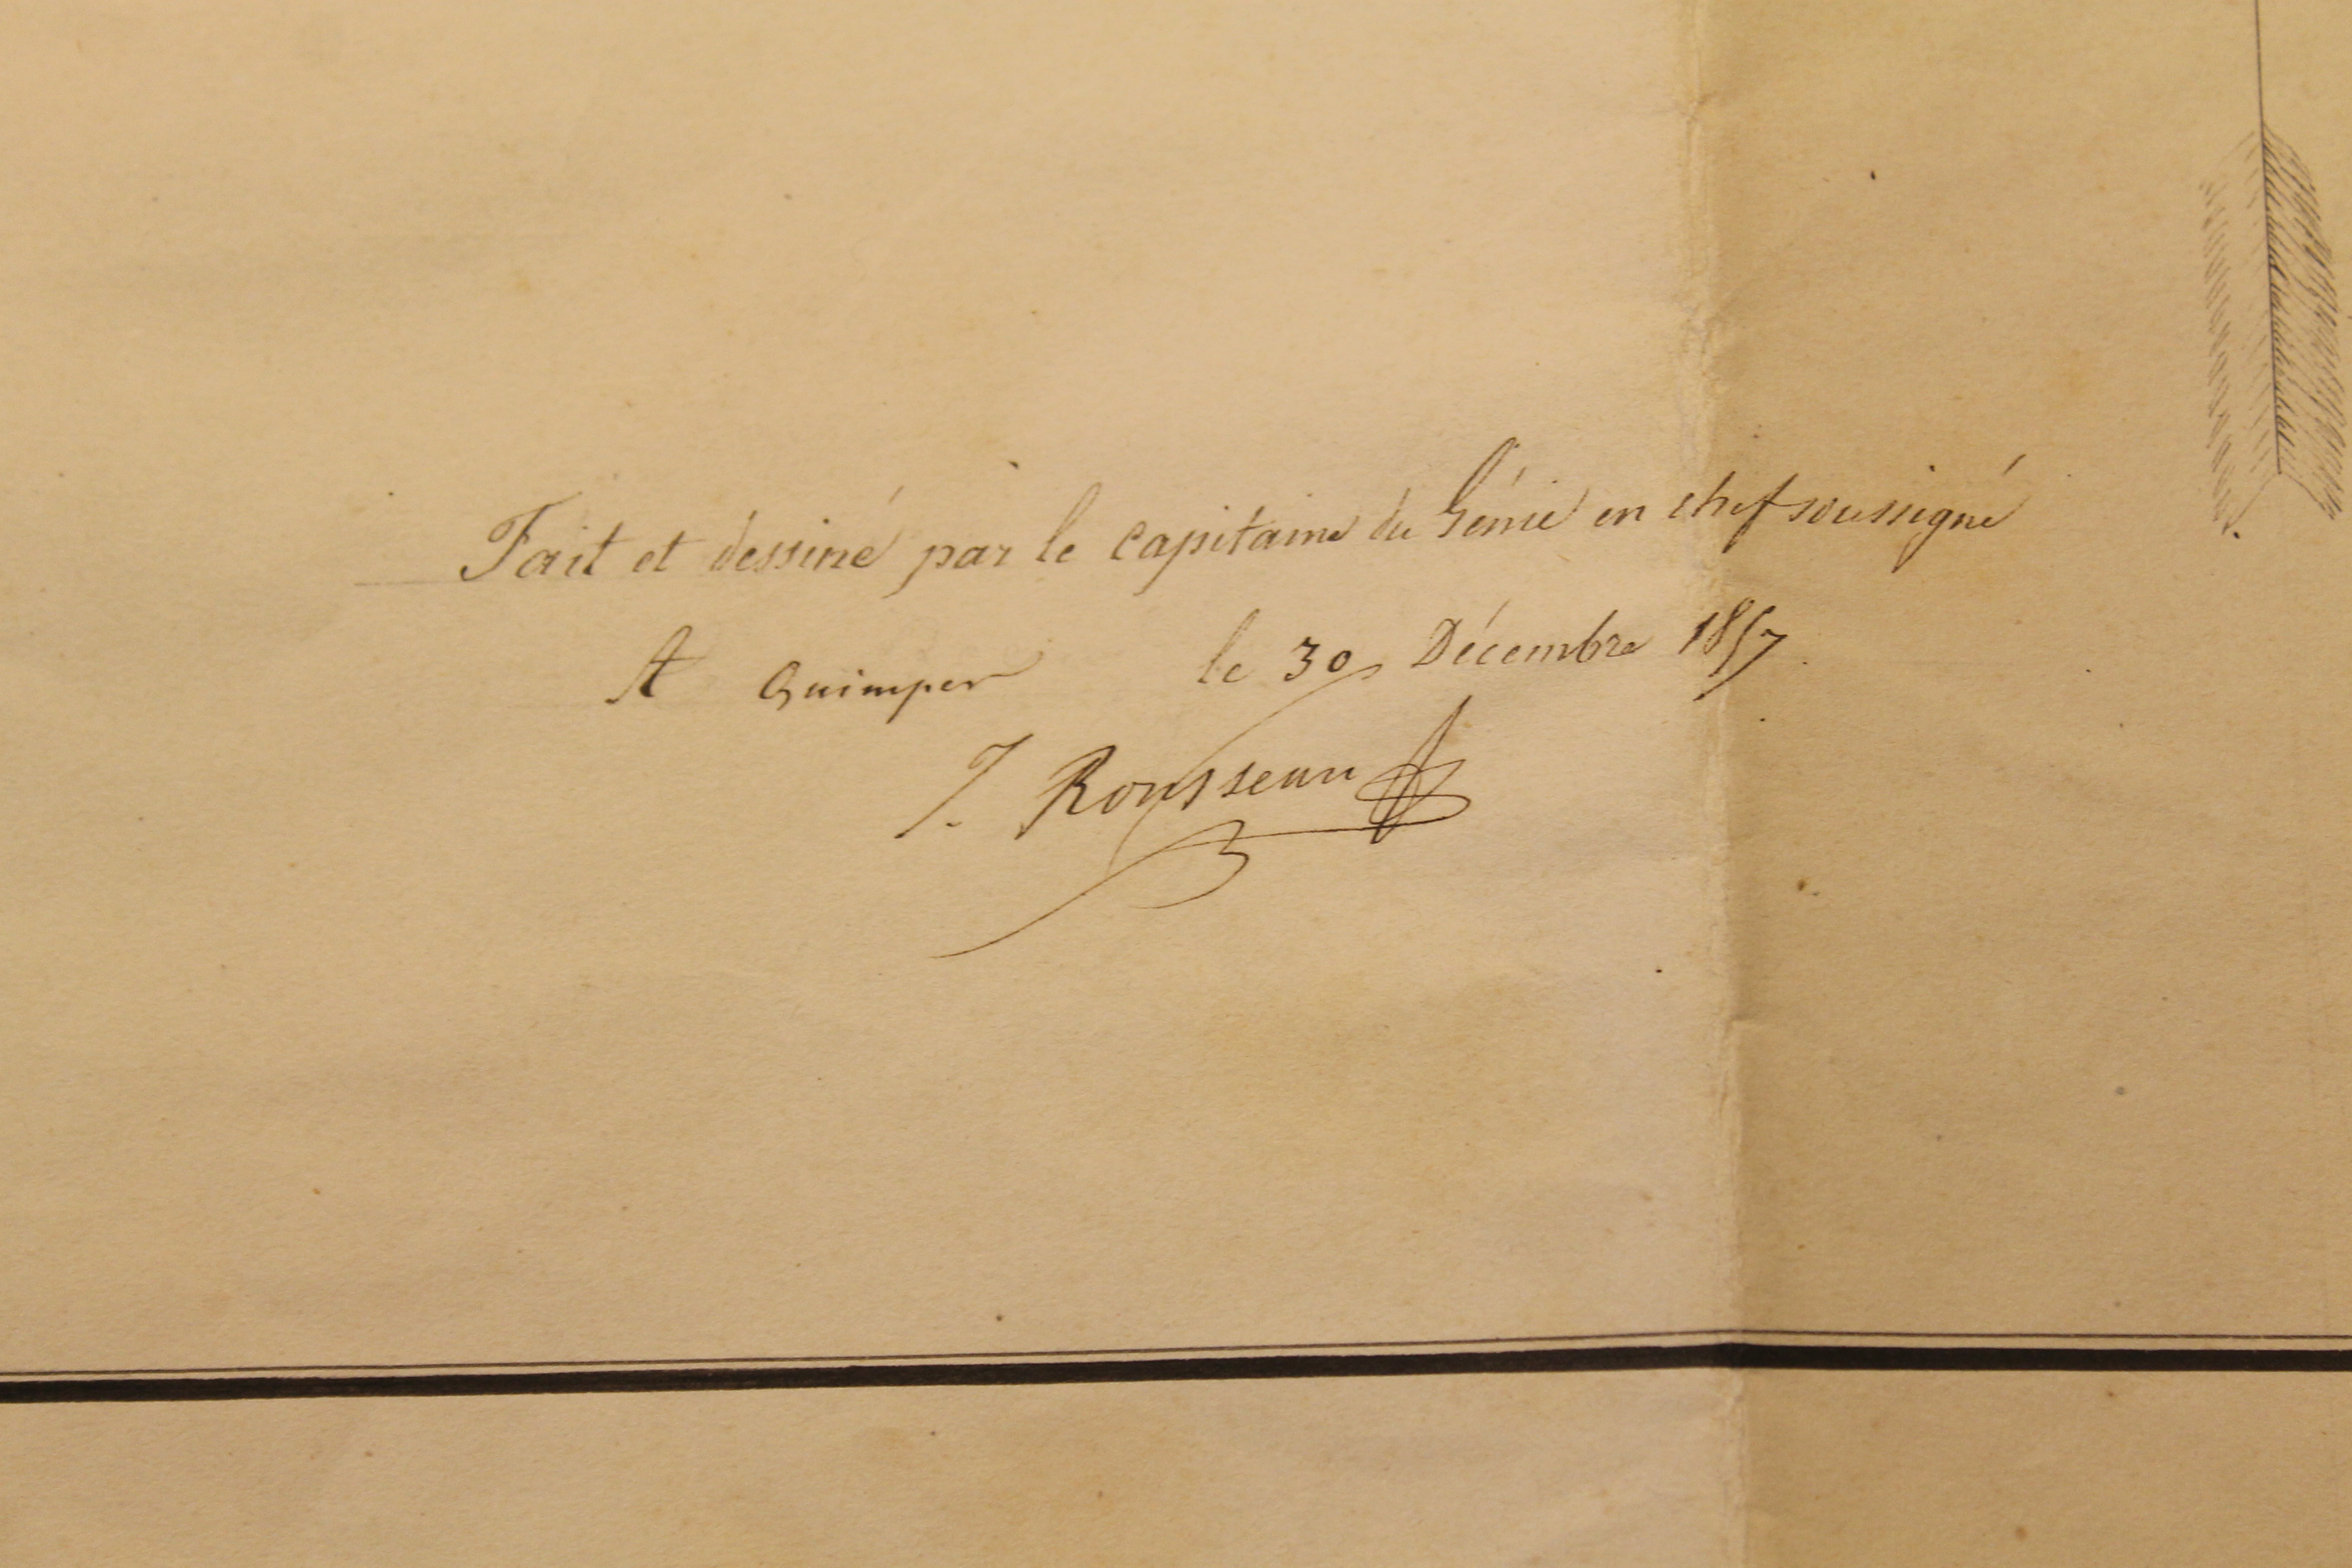 Fait et dessiné par le capitaine du Génie en chef soussigné
A Quimper le 30 Décembre 1857
J. Rousseau